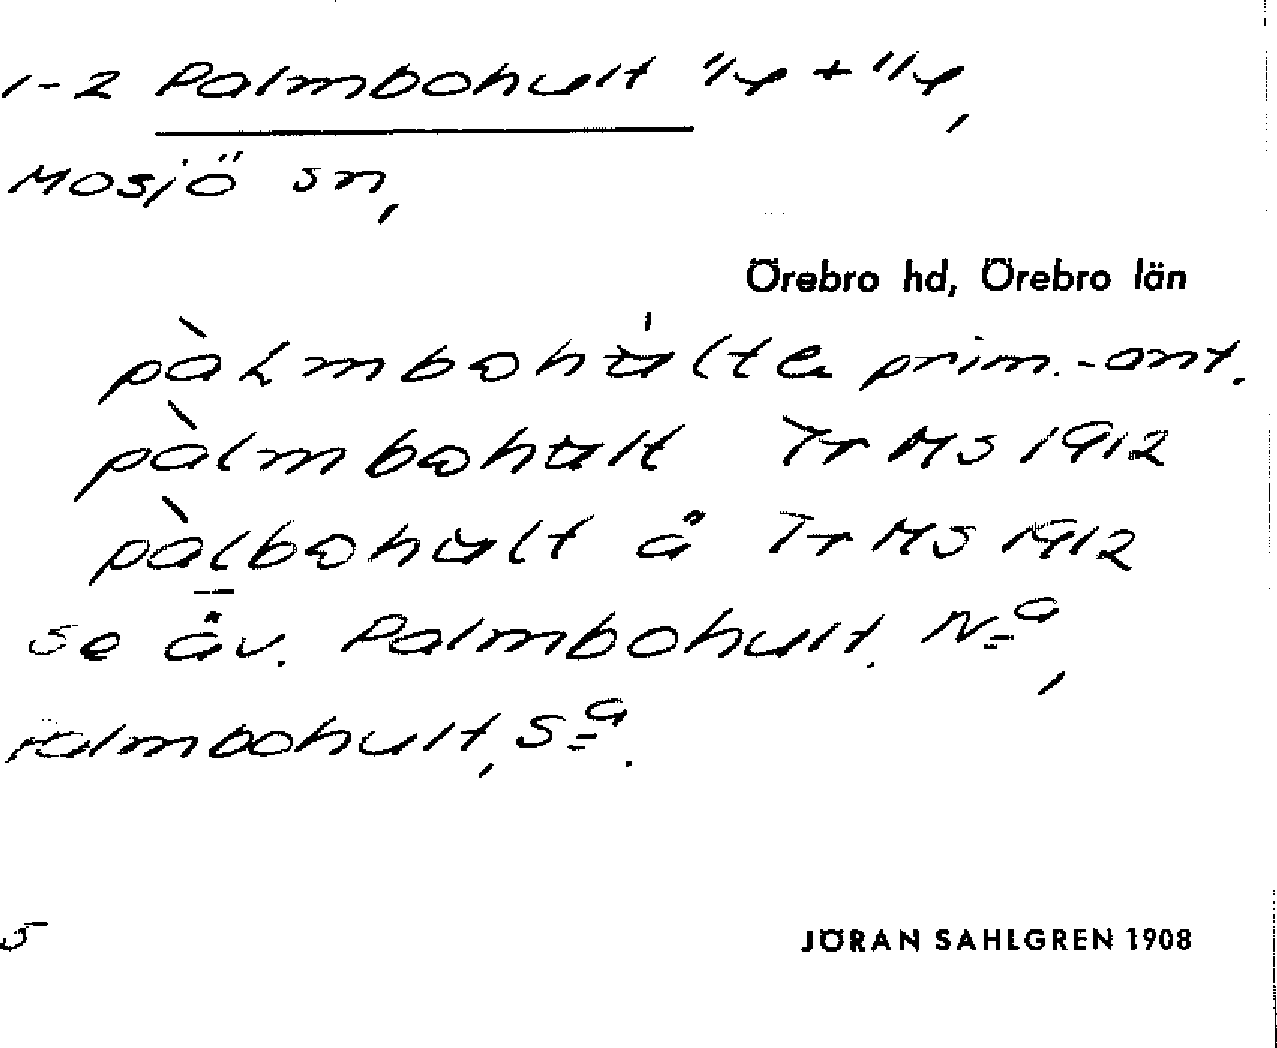 1-2 Palmbohult 1/4 + 1/4,
Mosjö sn,
Örebro hd, Örebro län
pàLmbohu̍lta prim.-ant.
pàlmbohult Tr MS 1912
pàlbohult å Tr MS 1912
se äv. Palmbohult, Nª,
Palmbohult, Sª.
5
JÖRAN SAHLGREN 1908